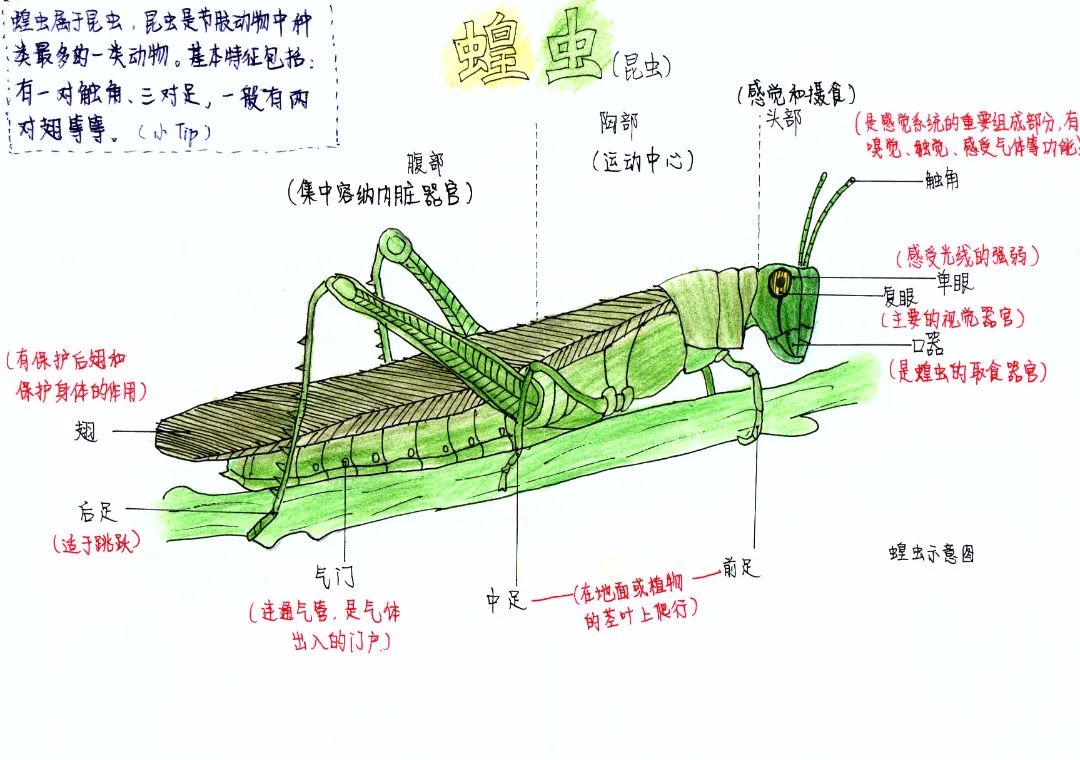 蝗虫属于昆虫，昆虫是节肢动物中种
类最多的一类动物。基本特征包括：
有一对触角、三对足，一般有两
对翅等等。（小Tip）
蝗虫（昆虫）
腹部
（集中容纳内脏器官）
胸部
（运动中心）
（感觉和摄食）
头部
（是感觉系统的重要组成部分，有
嗅觉、触觉、感受气体等功能）
触角
（感受光线的强弱）
单眼
复眼
（主要的视觉器官）
口器
（是蝗虫的取食器官）
（有保护后翅和
保护身体的作用）
翅
后足
（适于跳跃）
气门
（连通气管，是气体
出入的门户）
中足
（在地面或植物
的茎叶上爬行）
前足
蝗虫示意图